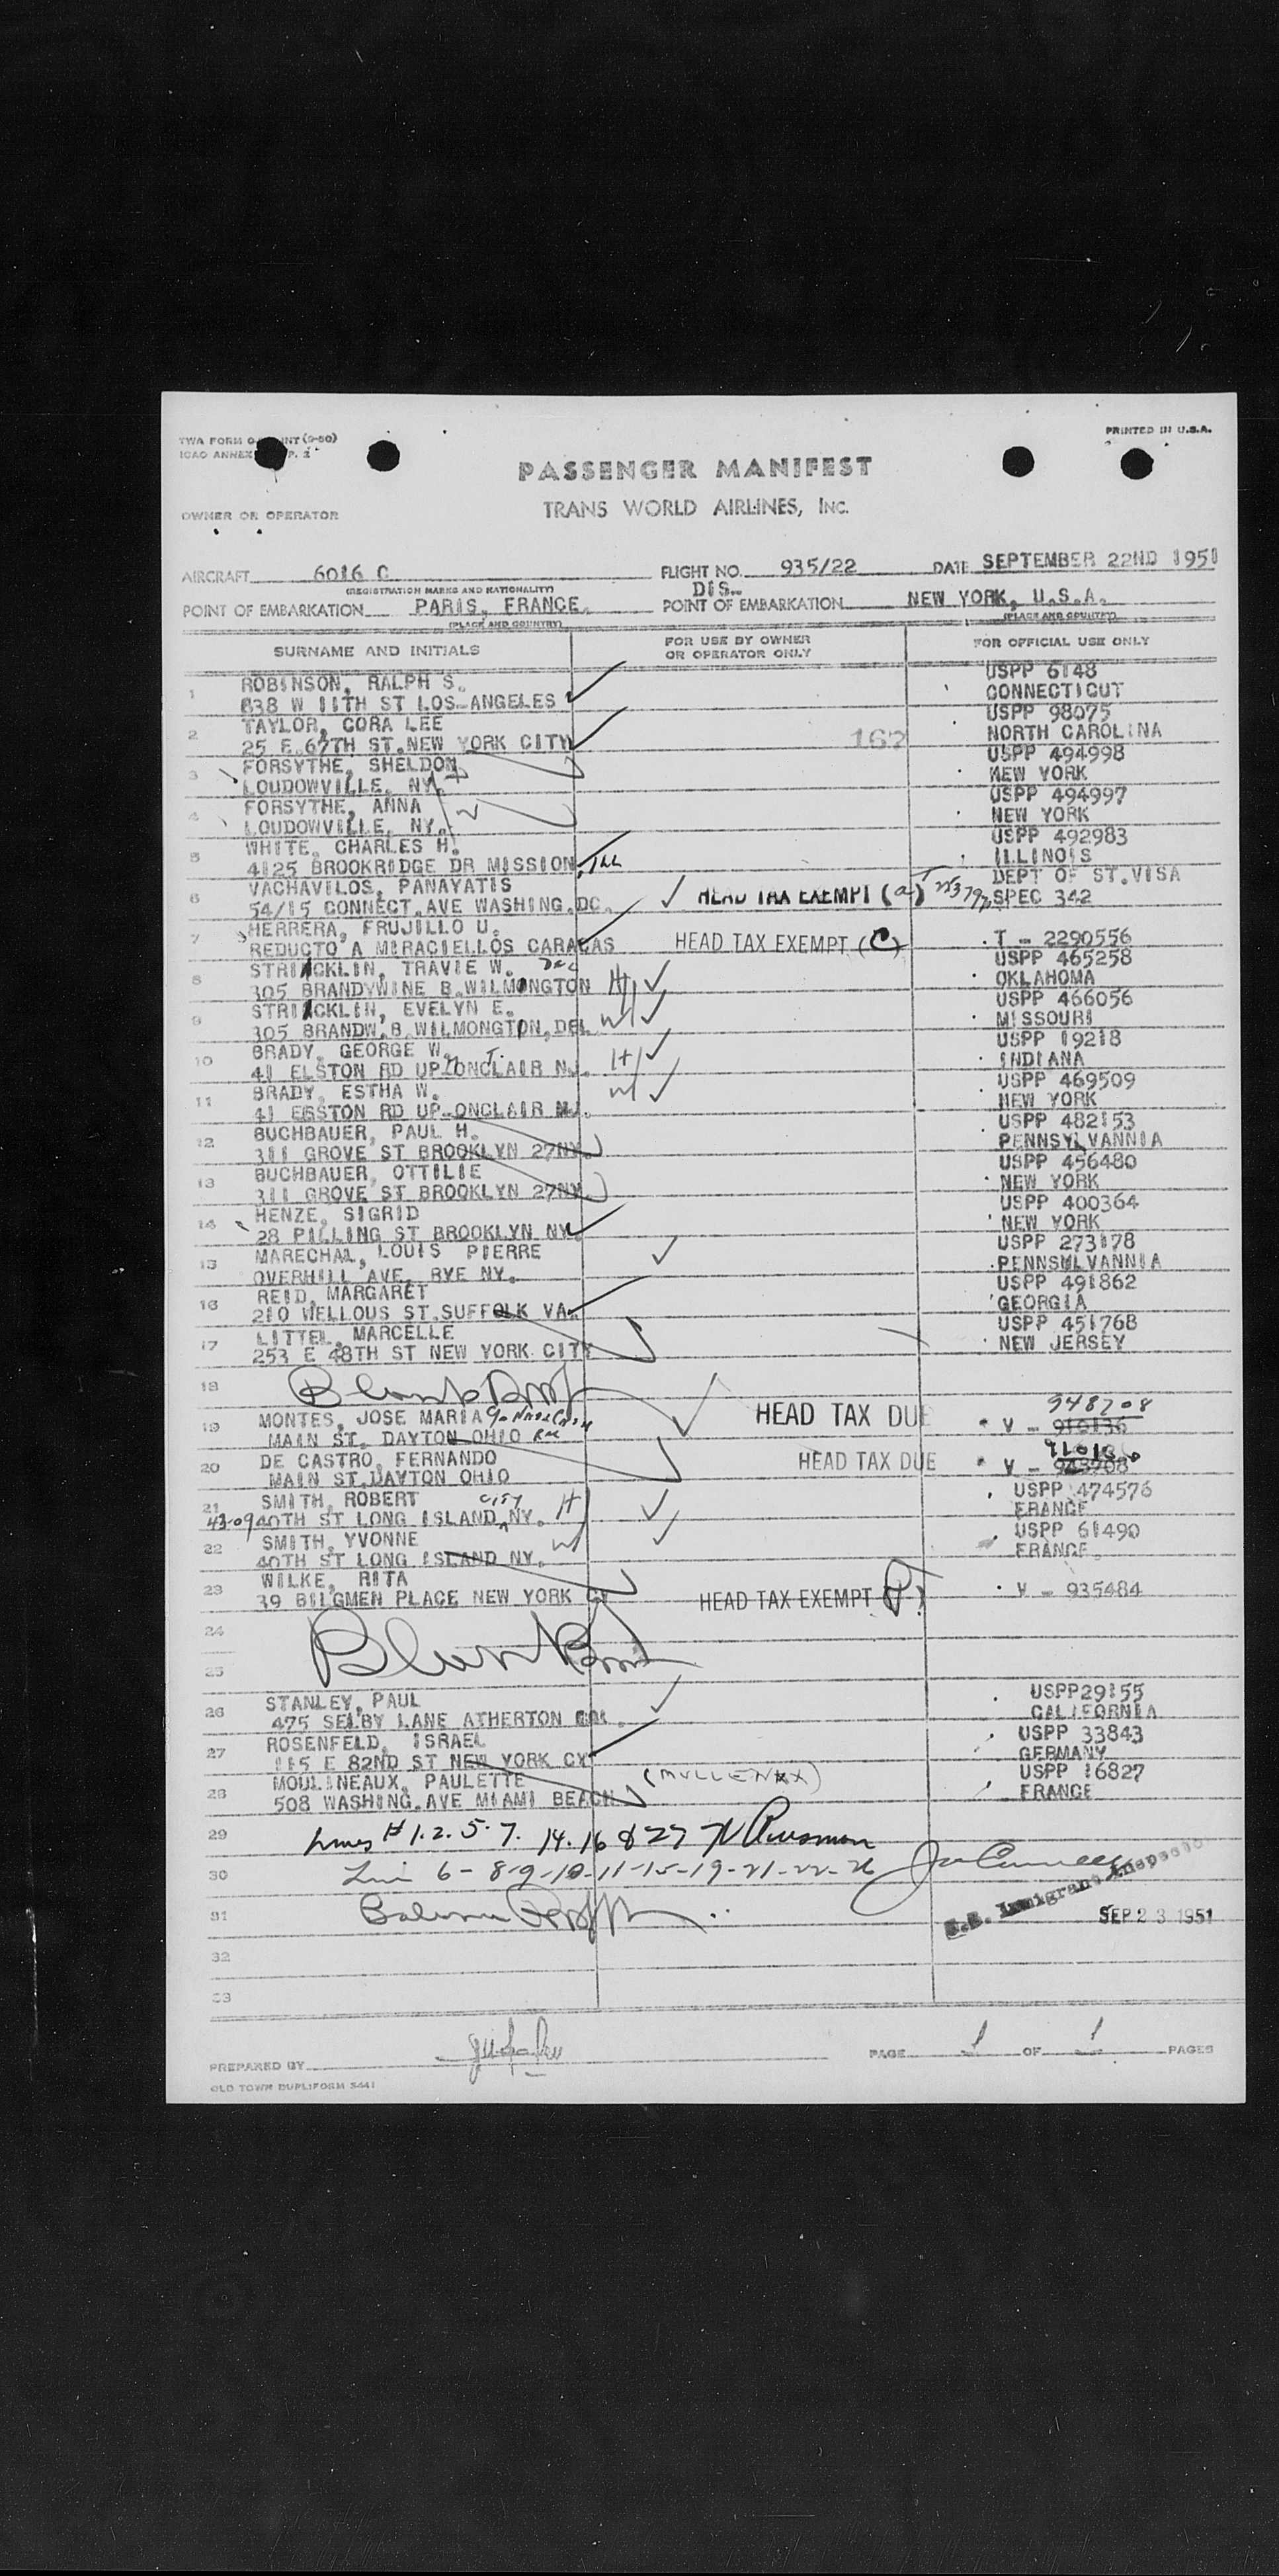 TWA FORM O INT (9-50)
ICAO ANNEX P. 2
PRINTED IN U.S.A.
PASSENGER MANIFEST
TRANS WORLD AIRLINES, INC.
OWNER OR OPERATOR
AIRCRAFT 6016 C FLIGHT NO. 935/22 DATE SEPTEMBER 22ND 1951
(REGISTRATION MARKS AND NATIONALITY)
POINT OF EMBARKATION PARIS, FRANCE. DIS. POINT OF EMBARKATION NEW YORK, U.S.A.
(PLACE AND COUNTRY) (PLACE AND COUNTRY)
SURNAME AND INITIALS FOR USE BY OWNER OR OPERATOR ONLY FOR OFFICIAL USE ONLY
1 ROBINSON, RALPH S. USPP 6148
838 W 11TH ST LOS-ANGELES CONNECTICUT
2 TAYLOR, CORA LEE USPP 98075
25 E.67TH ST.NEW YORK CITY 167 NORTH CAROLINA
3 FORSYTHE, SHELDON USPP 494998
LOUDOWVILLE, NY. NEW YORK
4 FORSYTHE, ANNA USPP 494997
LOUDOWVILLE, NY. NEW YORK
5 WHITE, CHARLES H. USPP 492983
4125 BROOKRIDGE DR MISSION, ILLINOIS
6 VACHAVILOS, PANAYATIS DEPT OF ST.VISA
54/15 CONNECT.AVE WASHING.DC. HEAD TAX EXEMPT (a) SPEC 342
7 HERRERA, FRUJILLO U.
REDUCTO A MIRACIELLOS CARACAS HEAD TAX EXEMPT (C) T - 2290556
8 STRICKLIN, TRAVIE W. Del USPP 465258
305 BRANDYWINE B.WILMONGTON H OKLAHOMA
9 STRICKLIN, EVELYN E. USPP 466056
305 BRANDW.B.WILMONGTON, DEL W MISSOURI
10 BRADY, GEORGE W. USPP 19218
41 ELSTON RD UP MONCLAIR NJ. H INDIANA
11 BRADY, ESTHA W. USPP 469509
41 EGSTON RD UP-ONCLAIR NJ. W NEW YORK
12 BUCHBAUER, PAUL H. USPP 482153
311 GROVE ST BROOKLYN 27NY. PENNSYLVANNIA
13 BUCHBAUER, OTTILIE USPP 456480
311 GROVE ST BROOKLYN 27NY NEW YORK
14 HENZE, SIGRID USPP 400364
28 PILLING ST BROOKLYN NY. NEW YORK
15 MARECHAL, LOUIS PIERRE USPP 273178
OVERHILL AVE, RYE NY. PENNSULVANNIA
16 REID, MARGARET USPP 491862
210 WELLOUS ST.SUFFOLK VA. GEORGIA
17 LITTEL, MARCELLE USPP 451768
253 E 48TH ST NEW YORK CITY NEW JERSEY
18 Blank
19 MONTES, JOSE MARIA HEAD TAX DUE 948708
MAIN ST. DAYTON OHIO V - 910136
20 DE CASTRO, FERNANDO HEAD TAX DUE 910136
MAIN ST.DAYTON OHIO V - 948708
21 SMITH, ROBERT H USPP 474576
43-09 40TH ST LONG ISLAND CITY NY. FRANCE
22 SMITH, YVONNE W USPP 61490
40TH ST LONG ISLAND NY. FRANCE
23 WILKE, RITA
39 BILGMEN PLACE NEW YORK CT HEAD TAX EXEMPT V - 935484
24 Blank
25
26 STANLEY, PAUL USPP29155
475 SELBY LANE ATHERTON CAL. CALIFORNIA
27 ROSENFELD, ISRAEL USPP 33843
115 E 82ND ST NEW YORK CY GERMANY
28 MOULINEAUX, PAULETTE (MULLENAX) USPP 16827
508 WASHING.AVE MIAMI BEACH FRANCE
29 Lines # 1.2.5.7. 14.16 & 27
30 Line 6-8-9-10-11-15-19-21-22-26
31 U.S. Immigrant Inspector
SEP 23 1951
32
33
PREPARED BY PAGE 1 OF 1 PAGES
OLD TOWN DUPLIFORM 5441